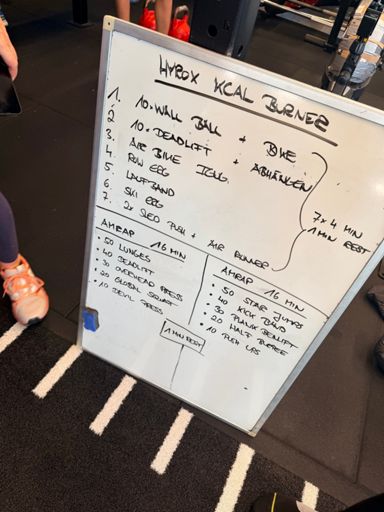 HYROX KCAL BURNER
1. 10. WALL BALL + BIKE
2 10. DEADLIFT + ABHÄNGEN
3. AIR BIKE
4. ROW ERG
5. LAUFBAND
6. SKI ERG
7. 2x SLED PUSH + AIR RUNNER
7x 4 MIN
1 MIN REST
AMRAP 16 MIN
• 50 LUNGES
• 40 DEADLIFT
• 30 OVERHEAD PRESS
• 20 GLOBAL SQUAT
• 10 DEVIL PRESS
1 MIN REST
AMRAP 16 MIN
• 50 STAR JUMPS
• 40 KICK
• 30 PLANK
• 20 HALF BURPEE
• 10 PUSH UPS